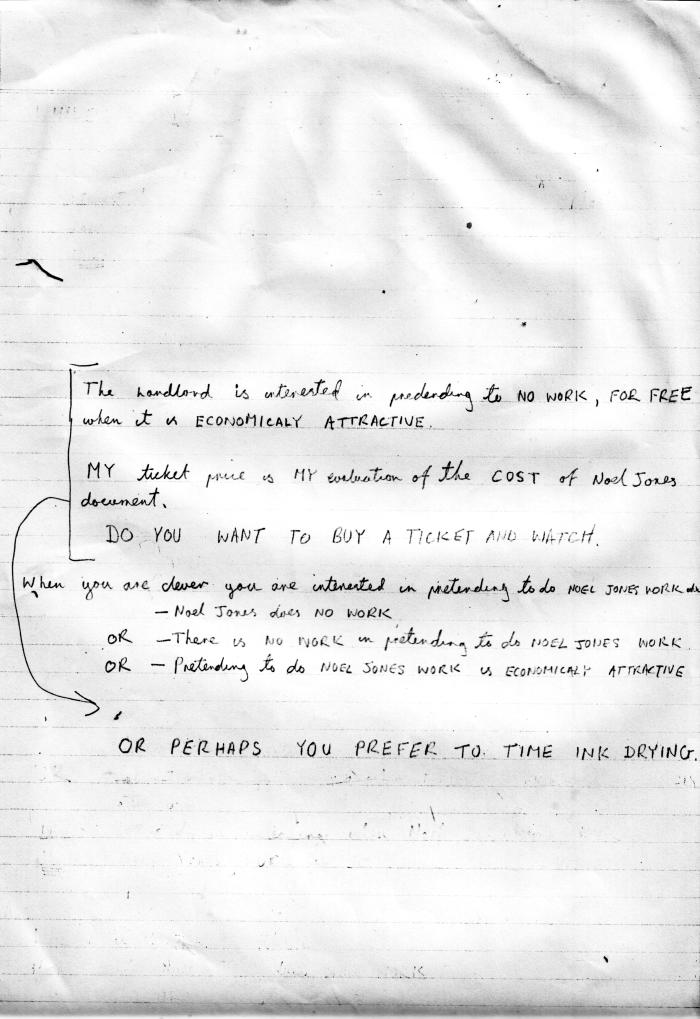 The Landlord is interested in predending to NO WORK, FOR FREE
when it is ECONOMICALY ATTRACTIVE.
MY ticket price is MY evaluation of the COST of Noel Jones
document.
DO YOU WANT TO BUY A TICKET AND WATCH.
When you are clever you are interested in pretending to do NOEL JONES WORK
— Noel Jones does NO WORK
OR — There is NO WORK in pretending to do NOEL JONES WORK
OR — Pretending to do NOEL JONES WORK is ECONOMICALY ATTRACTIVE
OR PERHAPS YOU PREFER TO TIME INK DRYING.